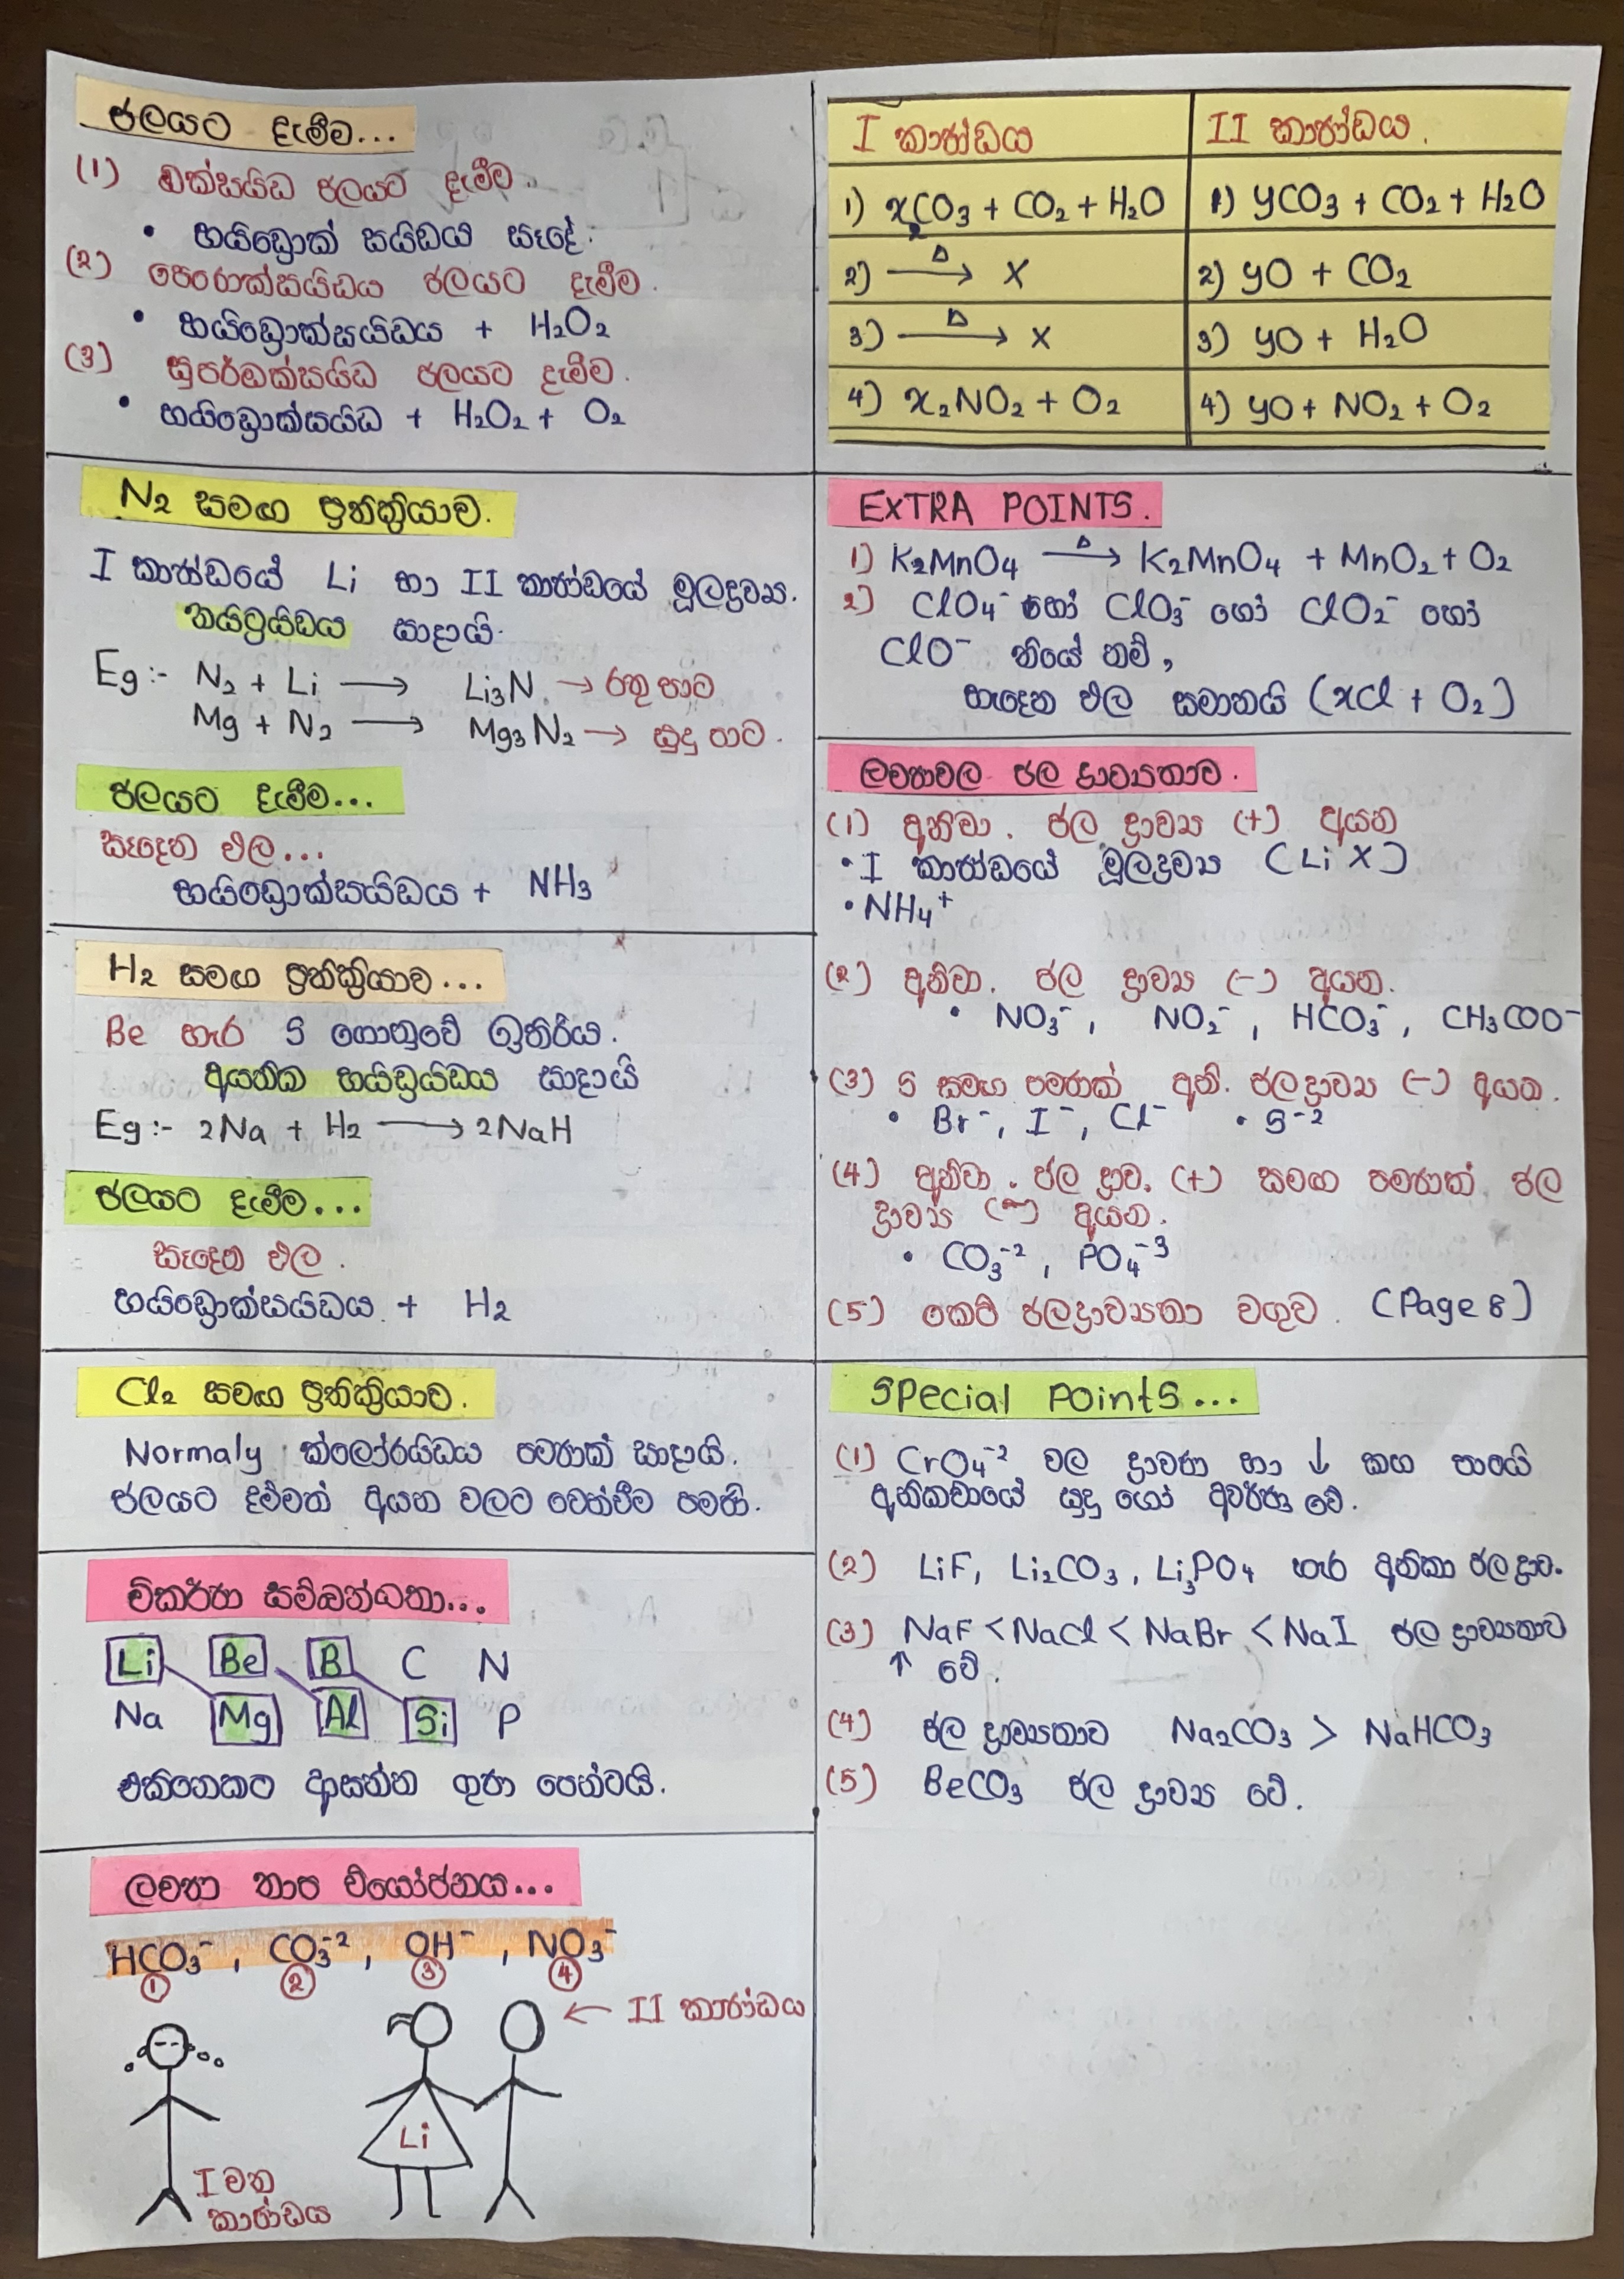 ජලයට දැමීම...
(1) ඔක්සයිඩ ජලයට දැමීම.
• හයිඩ්‍රොක් සයිඩය සෑදේ.
(2) පෙරොක්සයිඩය ජලයට දැමීම.
• හයිඩ්‍රොක්සයිඩය + H₂O₂
(3) සුපර්ඔක්සයිඩ ජලයට දැමීම.
• හයිඩ්‍රොක්සයිඩ + H₂O₂ + O₂
N₂ සමඟ ප්‍රතික්‍රියාව.
I කාණ්ඩයේ Li හා II කාණ්ඩයේ මූලද්‍රව්‍ය.
නයිට්‍රයිඩය සාදායි.
Eg :- N₂ + Li ⟶ Li₃N. → රතු පාට
Mg + N₂ ⟶ Mg₃N₂ → සුදු පාට.
ජලයට දැමීම...
සෑදෙන ඵල...
හයිඩ්‍රොක්සයිඩය + NH₃
H₂ සමඟ ප්‍රතික්‍රියාව...
Be හැර S ගොනුවේ ඉතිරිය.
අයනික හයිඩ්‍රයිඩය සාදායි
Eg :- 2Na + H₂ ⟶ 2NaH
ජලයට දැමීම...
සෑදෙන ඵල.
හයිඩ්‍රොක්සයිඩය + H₂
Cl₂ සමඟ ප්‍රතික්‍රියාව.
Normaly ක්ලෝරයිඩය පමණක් සාදායි.
ජලයට දැම්මත් අයන වලට වෙන්වීම පමණි.
විකර්ණ සම්බන්ධතා...
Li Be B C N
Na Mg Al Si P
එකිනෙකට ආසන්න ගුණ පෙන්වයි.
ලවණ තාප වියෝජනය...
HCO₃⁻, CO₃⁻², OH⁻, NO₃⁻
① ② ③ ④
← II කාණ්ඩය
Li
I වන
කාණ්ඩය
I කාණ්ඩය II කාණ්ඩය.
1) x₂CO₃ + CO₂ + H₂O 1) yCO₃ + CO₂ + H₂O
2) —Δ→ X 2) yO + CO₂
3) —Δ→ X 3) yO + H₂O
4) x₂NO₂ + O₂ 4) yO + NO₂ + O₂
EXTRA POINTS.
1) K₂MnO₄ —Δ→ K₂MnO₄ + MnO₂ + O₂
2) ClO₄⁻ හෝ ClO₃⁻ හෝ ClO₂⁻ හෝ
ClO⁻ තියේ නම්,
හැදෙන ඵල සමානයි (xCl + O₂)
ලවණවල ජල ද්‍රාව්‍යතාව.
(1) අනිවා. ජල ද්‍රාව්‍ය (+) අයන
• I කාණ්ඩයේ මූලද්‍රව්‍ය (Li X)
• NH₄⁺
(2) අනිවා. ජල ද්‍රාව්‍ය (−) අයන.
• NO₃⁻, NO₂⁻, HCO₃⁻, CH₃COO⁻
(3) S සමඟ පමණක් අනි. ජලද්‍රාව්‍ය (−) අයන.
• Br⁻, I⁻, Cl⁻ • S⁻²
(4) අනිවා. ජල ද්‍රාව. (+) සමඟ පමණක් ජල
ද්‍රාව්‍ය (−) අයන.
• CO₃⁻², PO₄⁻³
(5) කෙටි ජලද්‍රාව්‍යතා වගුව. (Page 8)
Special Points...
(1) CrO₄⁻² වල ද්‍රාවණ හා ↓ කහ පාටයි
අනිකවායේ සුදු හෝ අවර්ණ වේ.
(2) LiF, Li₂CO₃, Li₃PO₄ හැර අනිකා ජල ද්‍රාව.
(3) NaF < NaCl < NaBr < NaI ජල ද්‍රාව්‍යතාව
↑ වේ.
(4) ජල ද්‍රාව්‍යතාව Na₂CO₃ > NaHCO₃
(5) BeCO₃ ජල ද්‍රාව්‍ය වේ.